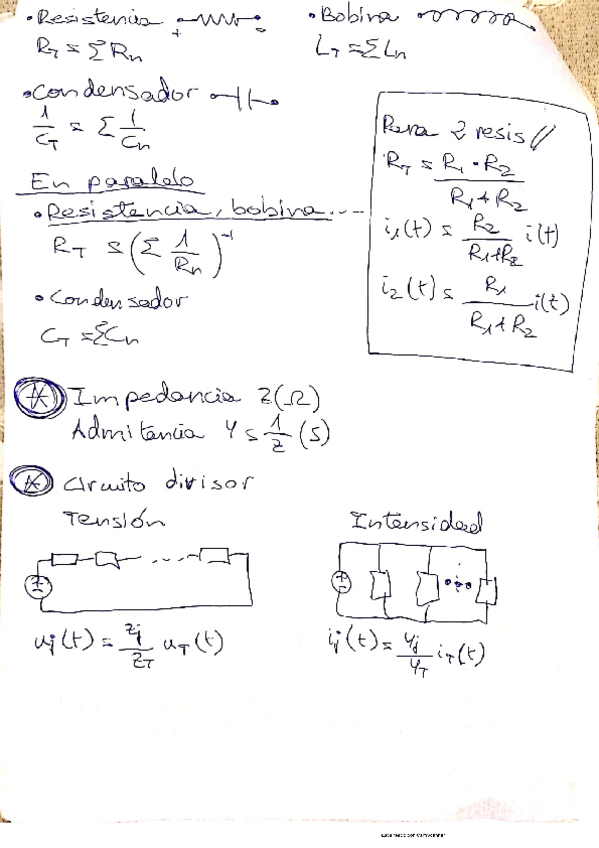 • Resistencia
+ -
R_T = Σ R_n
• Bobina
L_T = Σ L_n
• Condensador
1/C_T = Σ 1/C_n
En paralelo
• Resistencia, bobina...
R_T = (Σ 1/R_n)^-1
• Condensador
C_T = Σ C_n
Para 2 resis //
R_T = R_1 · R_2 / R_1 + R_2
i_1(t) = R_2 / R_1 + R_2 i(t)
i_2(t) = R_1 / R_1 + R_2 i(t)
Impedancia Z(Ω)
Admitancia Y = 1/Z (S)
Circuito divisor
Tensión
u_j(t) = Z_j / Z_T u_T(t)
Intensidad
i_j(t) = Y_j / Y_T i_T(t)